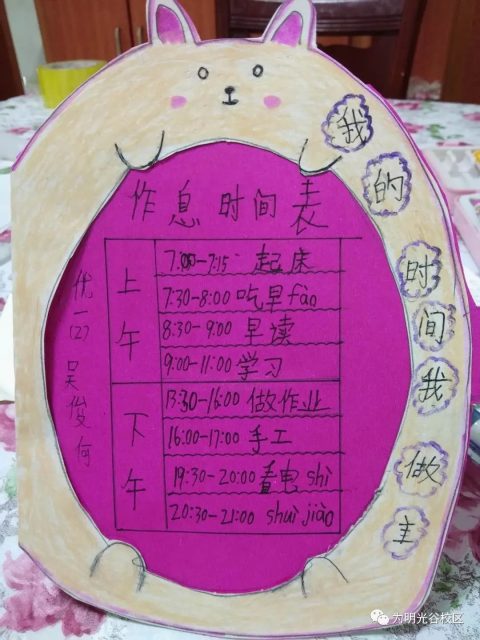 我的时间我做主
作息时间表
优一(2) 吴俊何
上午
7:00-7:15 起床
7:30-8:00 吃早fàn
8:30-9:00 早读
9:00-11:00 学习
下午
13:30-16:00 做作业
16:00-17:00 手工
19:30-20:00 看电shì
20:30-21:00 shuì jiào
为明光谷校区